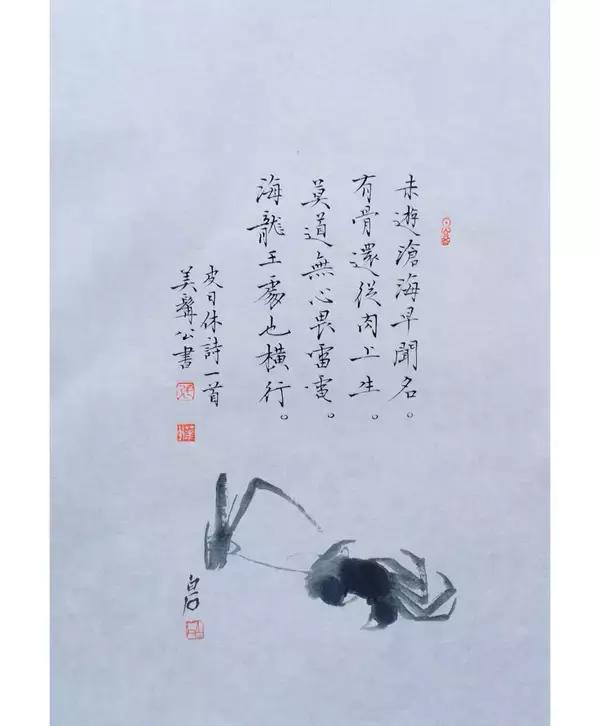 未遊滄海早聞名。
有骨還從肉上生。
莫道無心畏雷電。
海龍王處也橫行。
皮日休詩一首
美髯公書
白石